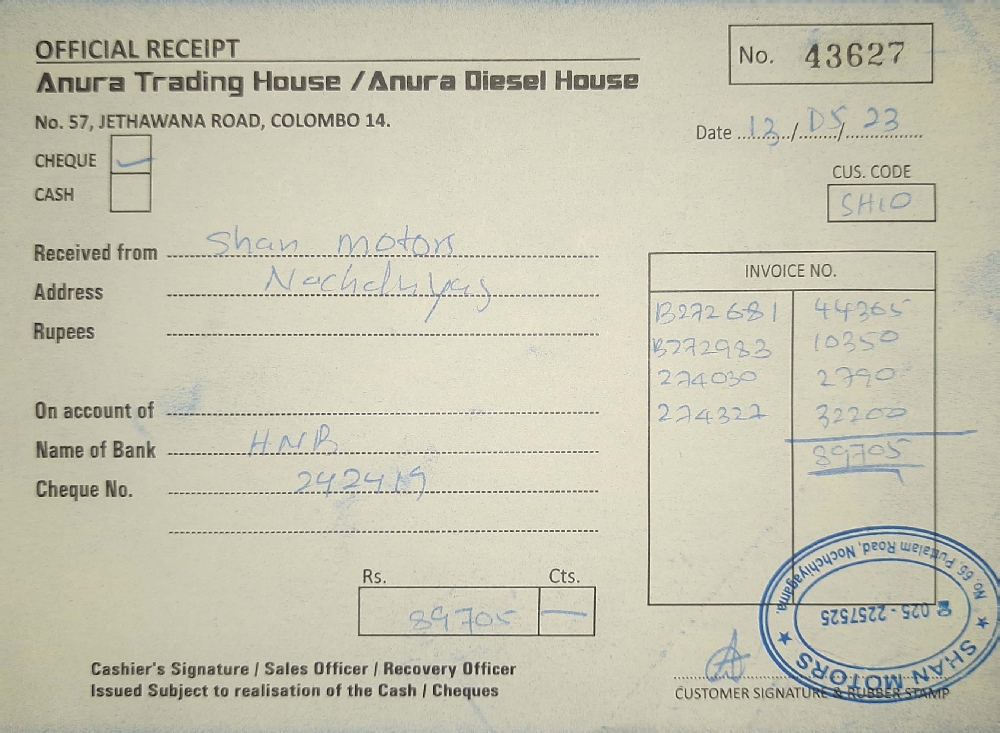 OFFICIAL RECEIPT
Anura Trading House / Anura Diesel House
No. 57, JETHAWANA ROAD, COLOMBO 14.
No. 43627
Date 13/05/23
CHEQUE
CASH
CUS. CODE
SH10
Received from Shan motors
Address
Rupees
On account of
Name of Bank HNB
Cheque No. 242419
INVOICE NO.
B272681 44365
B272983 10350
274030 2790
274327 32200
89705
Rs. Cts.
89705 —
Cashier's Signature / Sales Officer / Recovery Officer
Issued Subject to realisation of the Cash / Cheques
CUSTOMER SIGNATURE & RUBBER STAMP
No. 65, Puttalam Road, Nochchiyagama.
025 - 2257525
SHAN MOTORS